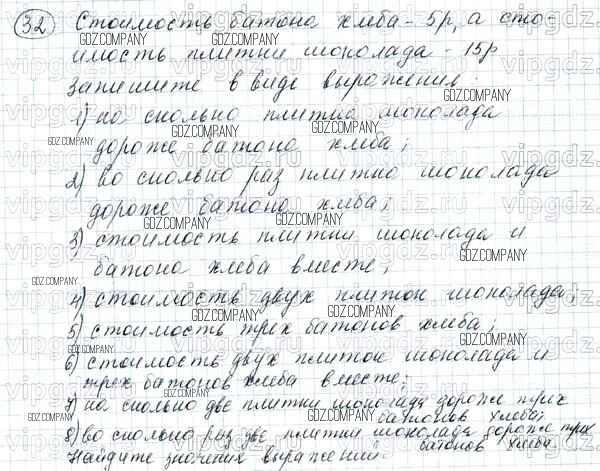 32 Стоимость батона хлеба - 5р, а сто-
имость плитки шоколада - 15р
Запишите в виде выражения:
1) на сколько плитка шоколада
дороже батона хлеба;
2) во сколько раз плитка шоколада
дороже батона хлеба;
3) стоимость плитки шоколада и
батона хлеба вместе;
4) стоимость двух плиток шоколада;
5) стоимость трех батонов хлеба;
6) стоимость двух плиток шоколада и
трех батонов хлеба вместе;
7) на сколько две плитки шоколада дороже трех
батонов хлеба;
8) во сколько раз две плитки шоколада дороже трех
батонов хлеба.
Найдите значения выражений.